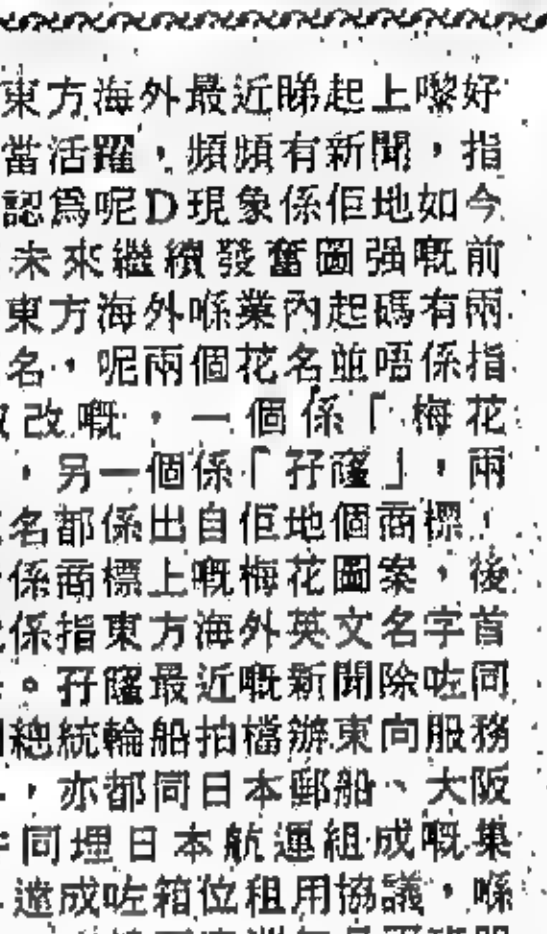 東方海外最近睇起上嚟好
當活躍，頻頻有新聞，指
認爲呢D現象係佢地如今
未來繼續發奮圖强嘅前
東方海外喺業內起碼有兩
名，呢兩個花名並唔係指
改嘅，一個係「梅花
，另一個係「孖窿」，兩
名都係出自佢地個商標！
係商標上嘅梅花圖案，後
係指東方海外英文名字首
。孖窿最近嘅新聞除咗同
總統輪船拍檔辦東向服務
，亦都同日本郵船、大阪
同埋日本航運組成嘅集
達成咗箱位租用協議，喺